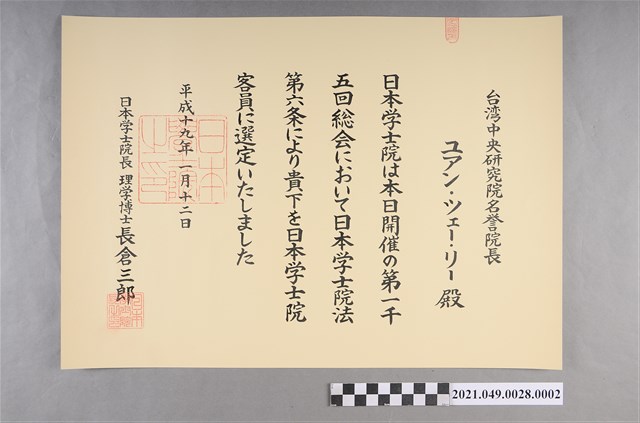 台湾中央研究院名誉院長
ユアン・ツェー・リー殿
日本学士院は本日開催の第一千
五回総会において日本学士院法
第六条により貴下を日本学士院
客員に選定いたしました
平成十九年一月十二日
日本学士院長 理学博士 長倉三郎
2021.049.0028.0002